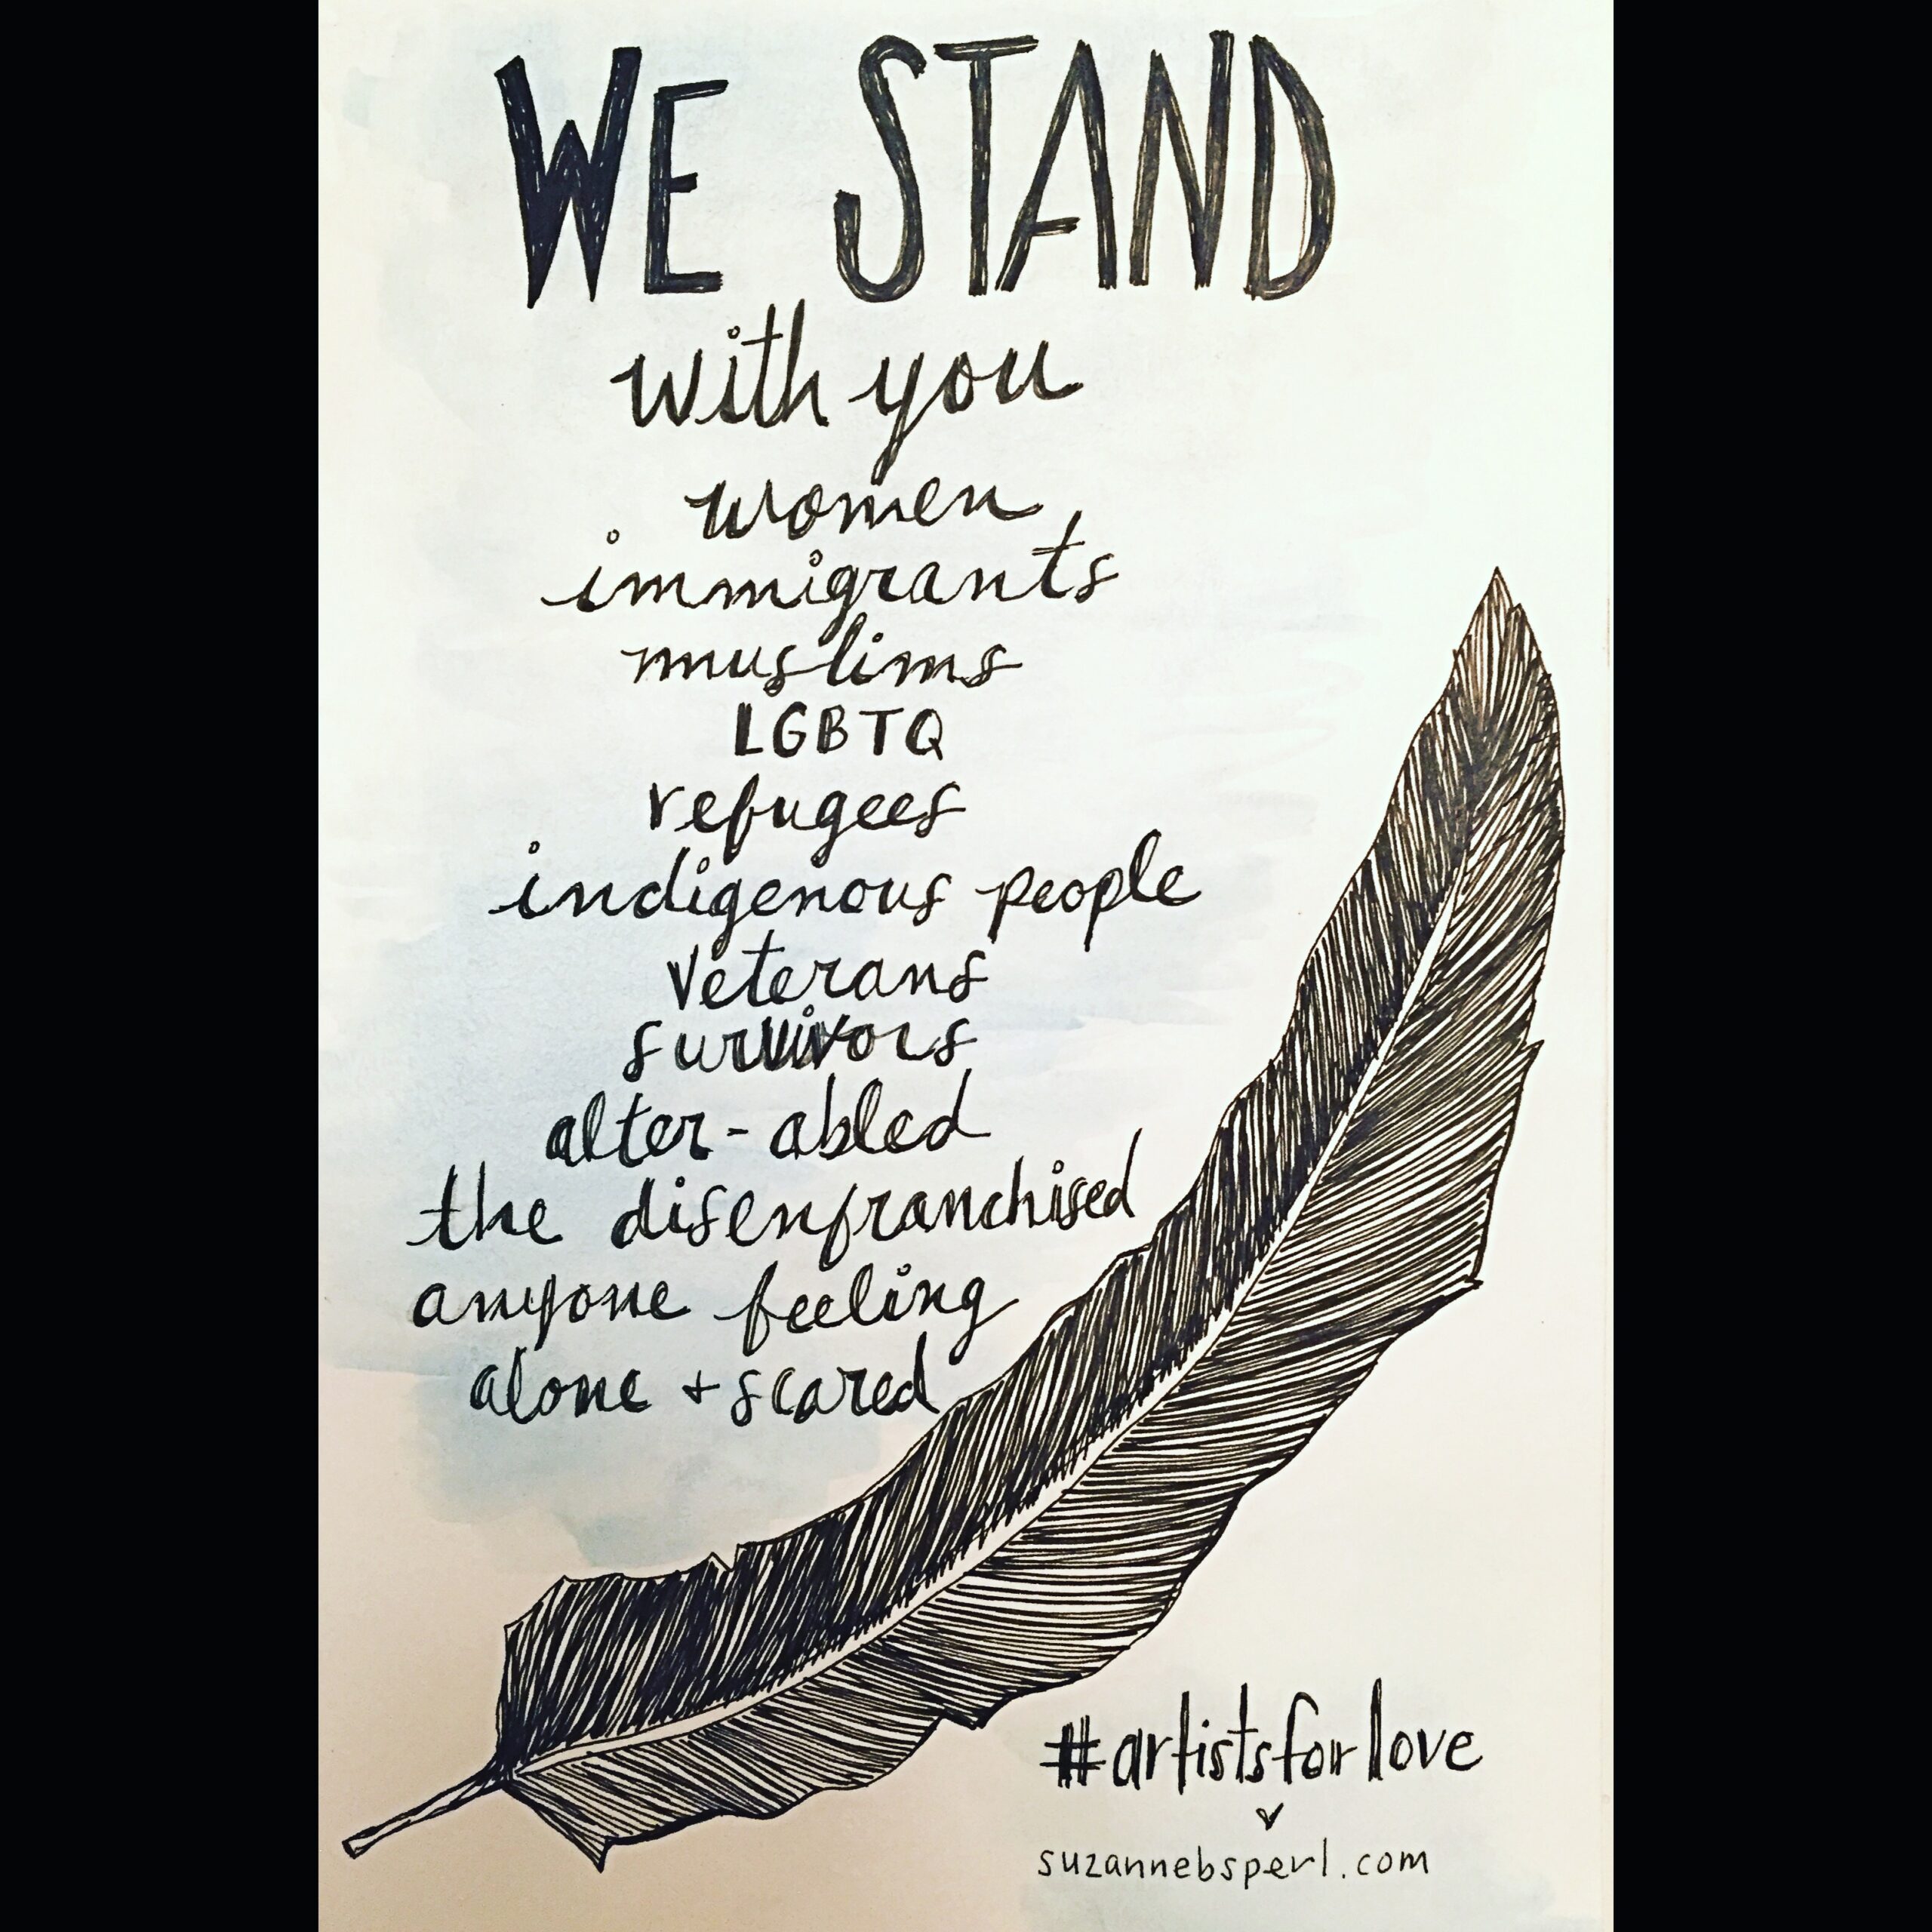 WE STAND
with you
women
immigrants
muslims
LGBTQ
refugees
indigenous people
veterans
survivors
alter-abled
the disenfranchised
anyone feeling
alone + scared
#artistsforlove
suzannebsperl.com